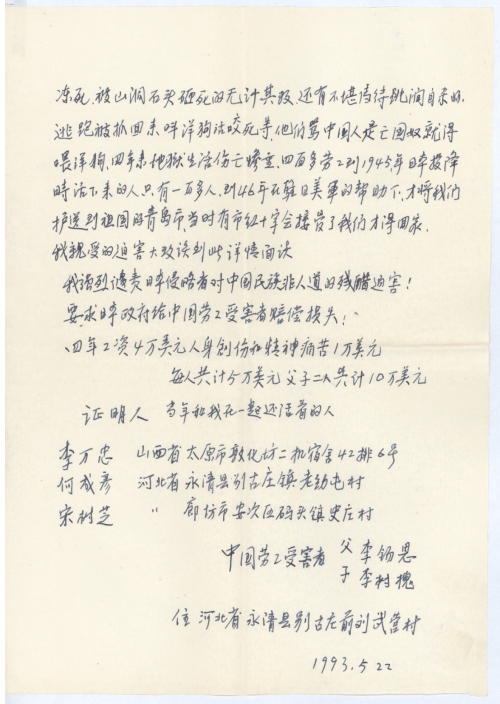 冻死、被山洞石头砸死的无计其数、还有不堪虐待跳涧自杀的.
逃跑被抓回来叫洋狗活咬死等.他们骂中国人是亡国奴就得
喂洋狗.四年来地狱生活伤亡惨重.四百多劳工到1945年日本投降
时活下来的人只有一百多人.到46年在驻日美軍的帮助下.才将我们
护送到祖国的青岛市.当时有市红十字会接营了我们才得回家.
我親受的迫害大致谈到此详情面谈
我强烈谴责日本侵略者对中国民族非人道的残酷迫害!
要求日本政府给中国劳工受害者赔偿损失!
四年工资4万美元人身创伤和精神痛苦1万美元
每人共计5万美元父子二人共计10万美元
证明人 当年和我在一起还活着的人
李万忠 山西省太原市敦化坊二机宿舍42排6号
何成彦 河北省永清县别古庄镇老幼屯村
宋树芝 〃 廊坊市安次区码头镇史庄村
中国劳工受害者 父 李锡恩
子 李树槐
住河北省永清县别古庄前刘武营村
1993.5.22